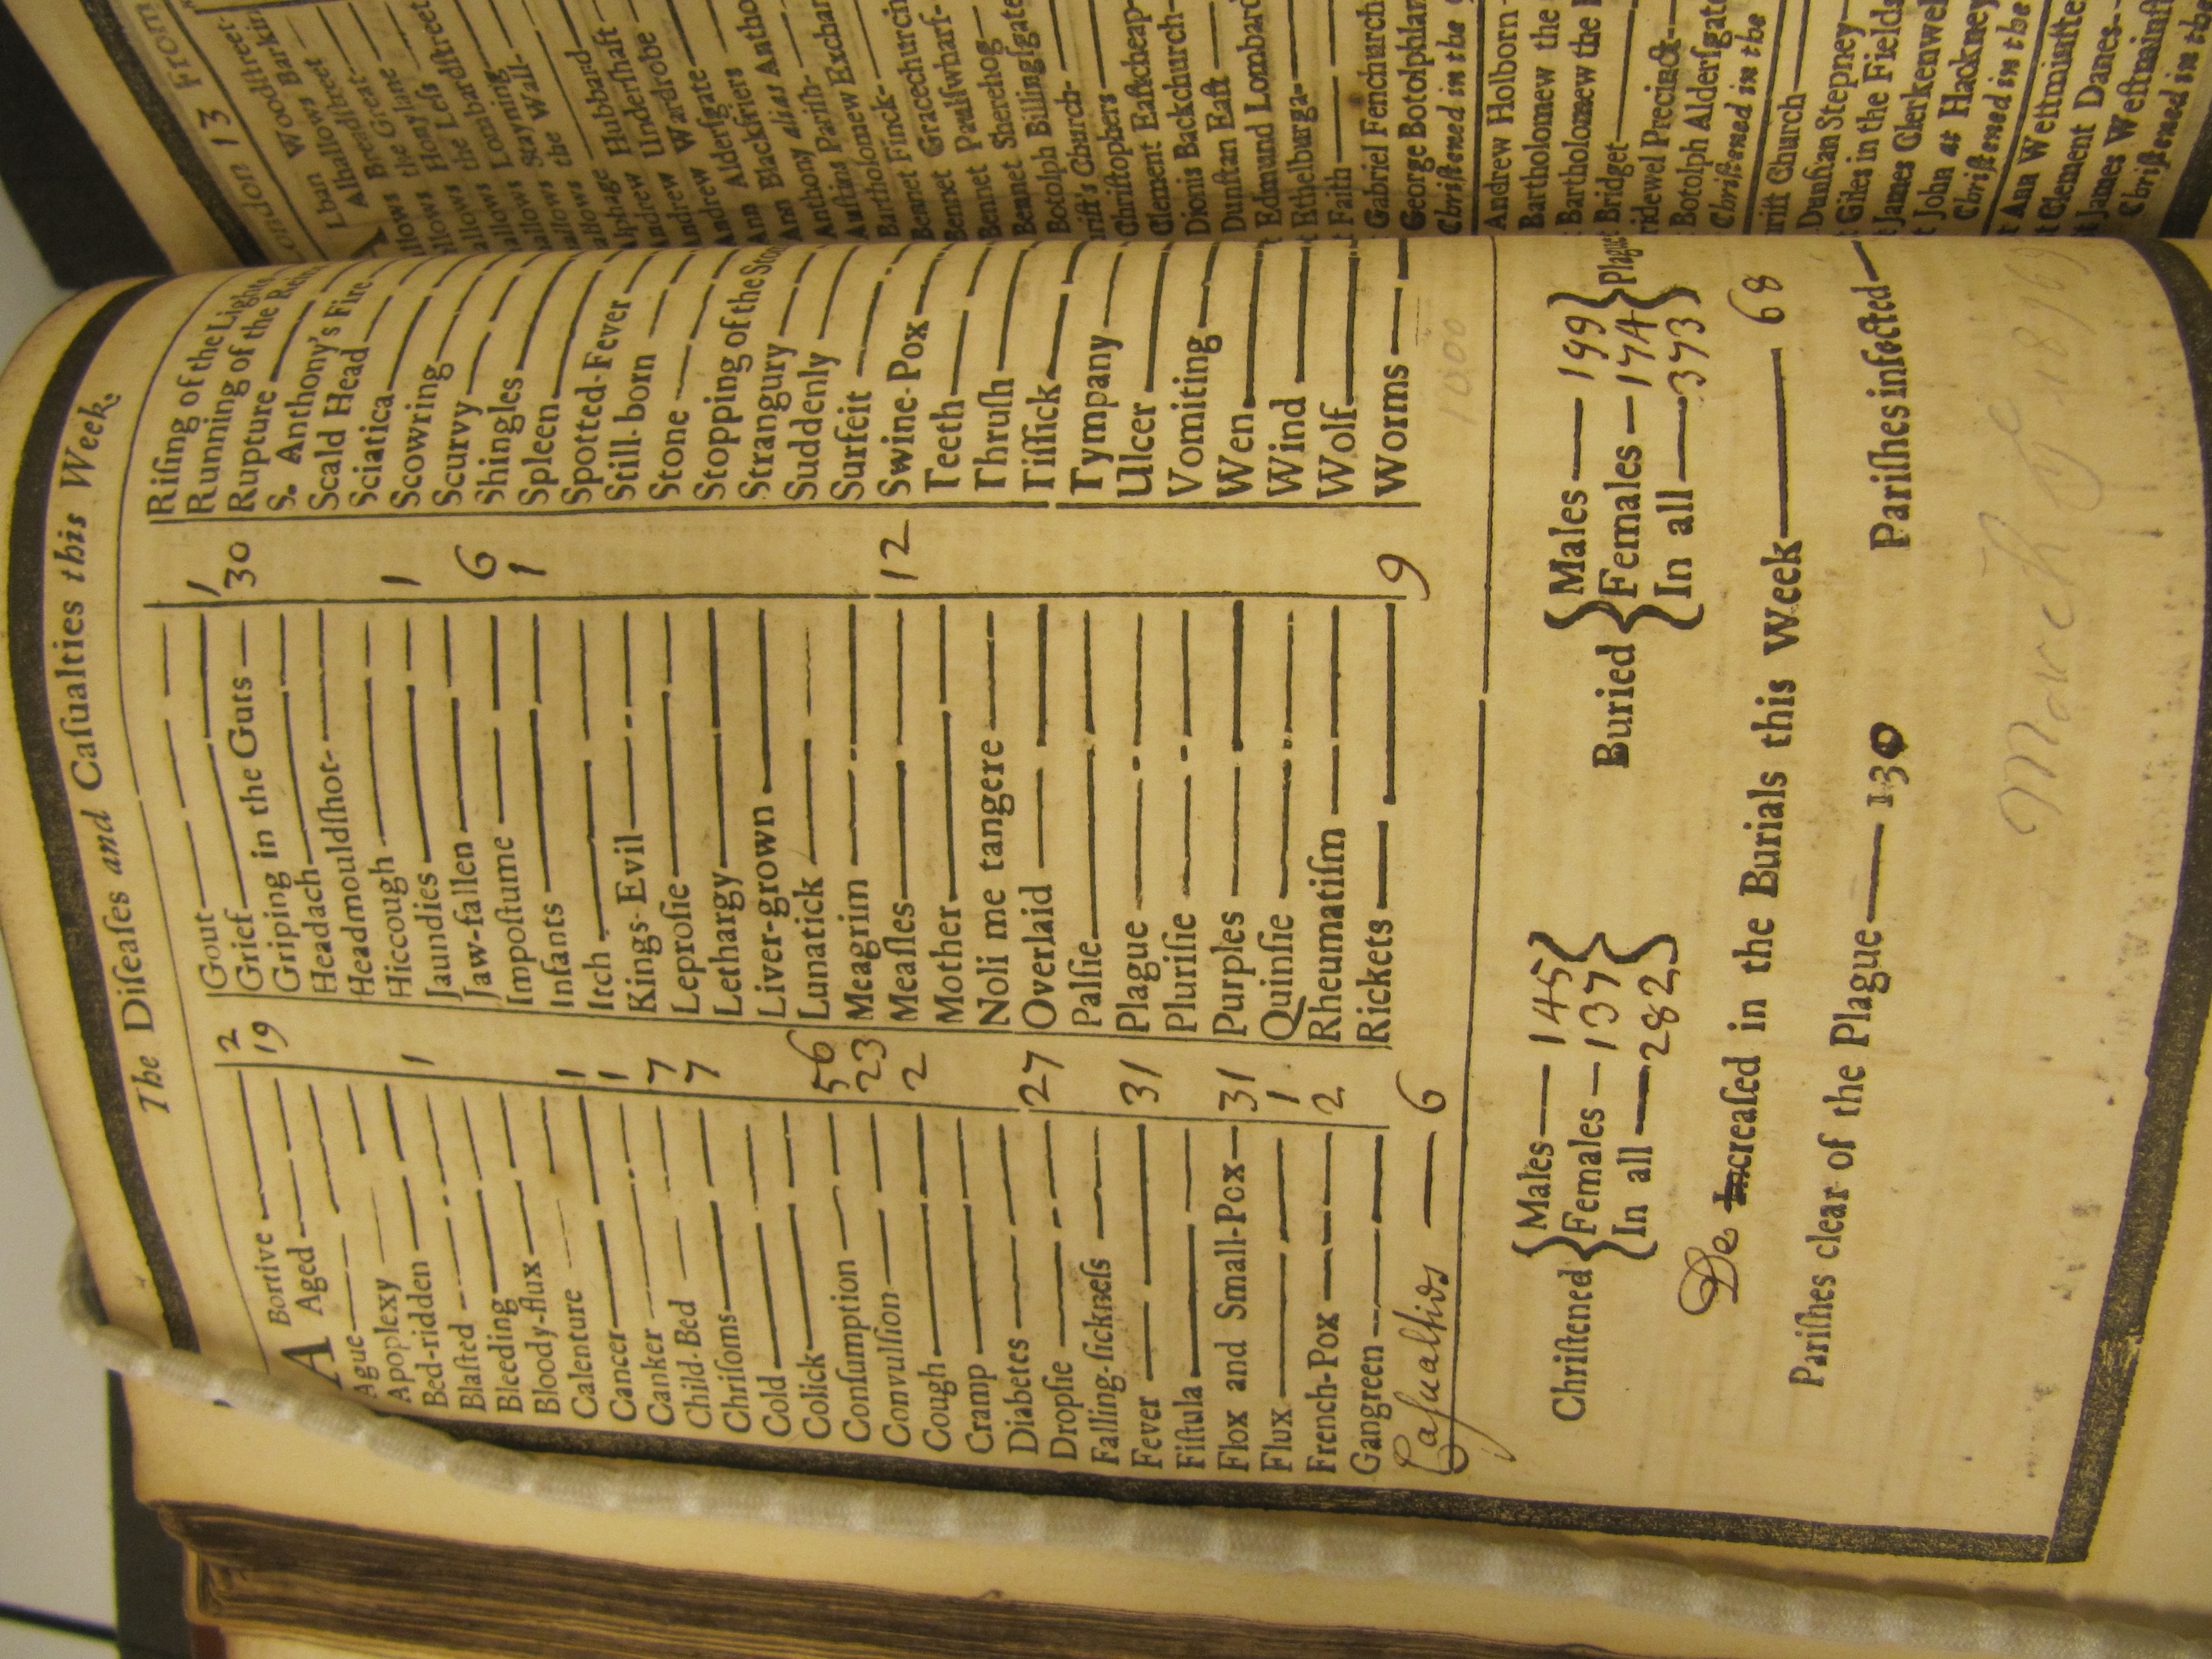 The Diſeaſes and Caſualties this Week.
ABortive 2
Aged 19
Ague
Apoplexy
Bed-ridden
Blaſted 1
Bleeding
Bloody-flux
Calenture
Cancer 1
Canker 1
Child-Bed 7
Chriſoms 7
Cold
Colick
Conſumption 56
Convulſion 23
Cough 2
Cramp
Diabetes
Dropſie 27
Falling-ſickneſs
Fever 31
Fiſtula
Flox and Small-Pox 31
Flux 1
French-Pox 2
Gangreen
Caſualties 6
Gout
Grief 1
Griping in the Guts 30
Headach
Headmouldſhot
Hiccough
Jaundies 1
Jaw-fallen
Impoſtume 6
Infants 1
Itch
Kings-Evil
Leproſie
Lethargy
Liver-grown
Lunatick
Meagrim
Meaſles 12
Mother
Noli me tangere
Overlaid
Palſie
Plague
Pluriſie
Purples
Quinſie
Rheumatiſm
Rickets 9
Riſing of the Lights
Running of the Rei
Rupture
S. Anthony's Fire
Scald Head
Sciatica
Scowring
Scurvy
Shingles
Spleen
Spotted-Fever
Still-born
Stone
Stopping of the Sto
Strangury
Suddenly
Surfeit
Swine-Pox
Teeth
Thruſh
Tiſſick
Tympany
Ulcer
Vomiting
Wen
Wind
Wolf
Worms
1000
Chriſtened
Males 145
Females 137
In all 282
Buried
Males 199
Females 174
In all 373
Plague
De Increaſed in the Burials this Week 68
Pariſhes clear of the Plague 130 Pariſhes infected
March
ondon 13 From
Lban Woodſtreet
Alhallows Barkin
Breadſtreet
llows Great
llows Honylane
llows Leſs
llows Lombardſtreet
allows Stayning
allows the Wall
Alphage
Andrew Hubbard
Andrew Underſhaft
Andrew Wardrobe
Ann Alderſgate
Ann Blackfriers
Anthony alias Antho
Auſtins Pariſh
Bartholomew Exchan
Bennet Finck
Bennet Gracechurch
Bennet Paulſwharf
Bennet Sherehog
Botolph Billingſgate
riſt's Church
Chriſtophers
Clement Eaſtcheap
Dionis Backchurch
Dunſtan Eaſt
Edmund Lombard
Ethelburga
Faith
Gabriel Fenchurch
George Botolphlan
Chriſtened in the
Andrew Holborn
Bartholomew the
Bartholomew the
Bridget
ridewel Precinct
Botolph Alderſgate
Chriſtened in the
rift Church
Dunſtan Stepney
Giles in the Fields
James Clerkenwel
John at Hackney
Chriſtened in the
Ann Weſtminſte
Clement Danes
James Weſtminſt
Chriſtened in the